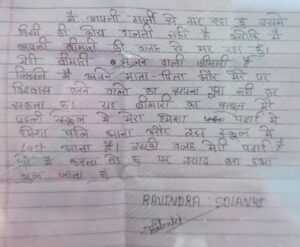 मै अपनी मर्जी से मर रहा हु इसमे
किसी की कोई गलती नही है क्योकि मै
अपनी बीमारी की वजह से मर रहा हु।
मेरी बीमारी भुलने वाली बीमारी है
जिससे मै अपने माता पिता और मेरे पर
विश्वास करने वालो का सपना पुरा नही कर
सकता हु। यह बीमारी का
पहली स्कुल मे मेरा हमेशा पढाई मे
हमेशा पहले आना और स्कुल मे
Last आना है। इसकी वजह मेरी पढाई है
जो मै करता तो हु पर याद करा हुआ
भुल जाता हु
RAVINDRA SOLANKI